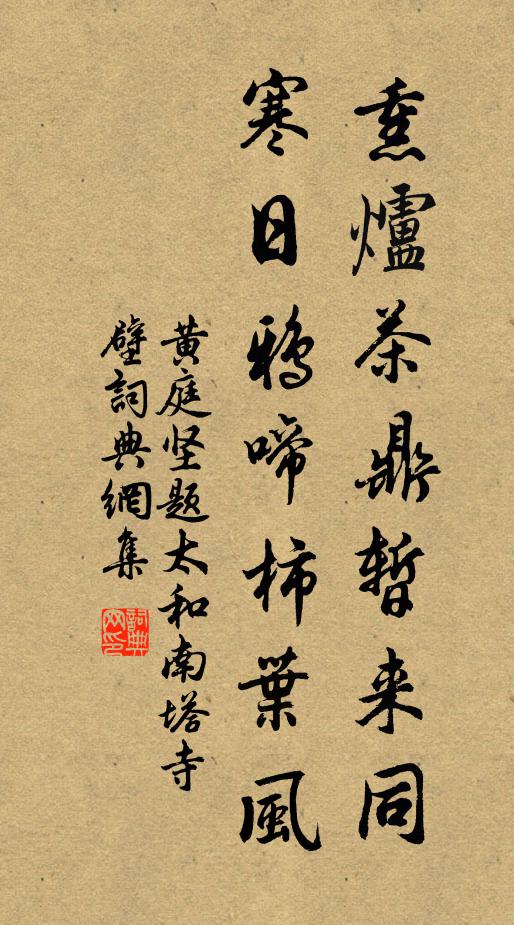 熏爐茶鼎暫来同
寒日鴉啼柿葉風
黄庭坚题太和南塔寺
壁詞典網集
詞典
网印